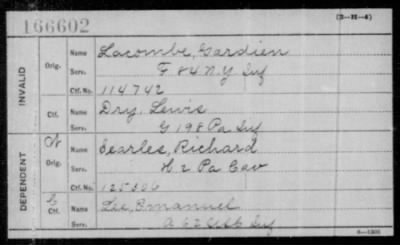 166602
(3-H-4)
INVALID
Orig.
Name Lacombe, Gardien
Serv. F 84 N.Y. Inf
Ctf. No. 114742
Ctf.
Name Dry, Lewis
Serv. G 198 Pa Inf
DEPENDENT
Orig.
Name Searles, Richard
Serv. H 2 Pa Cav
Ctf. No. 125306
C
Ctf.
Name Lee, Emanuel
Serv. A 62 Inf
6—1301